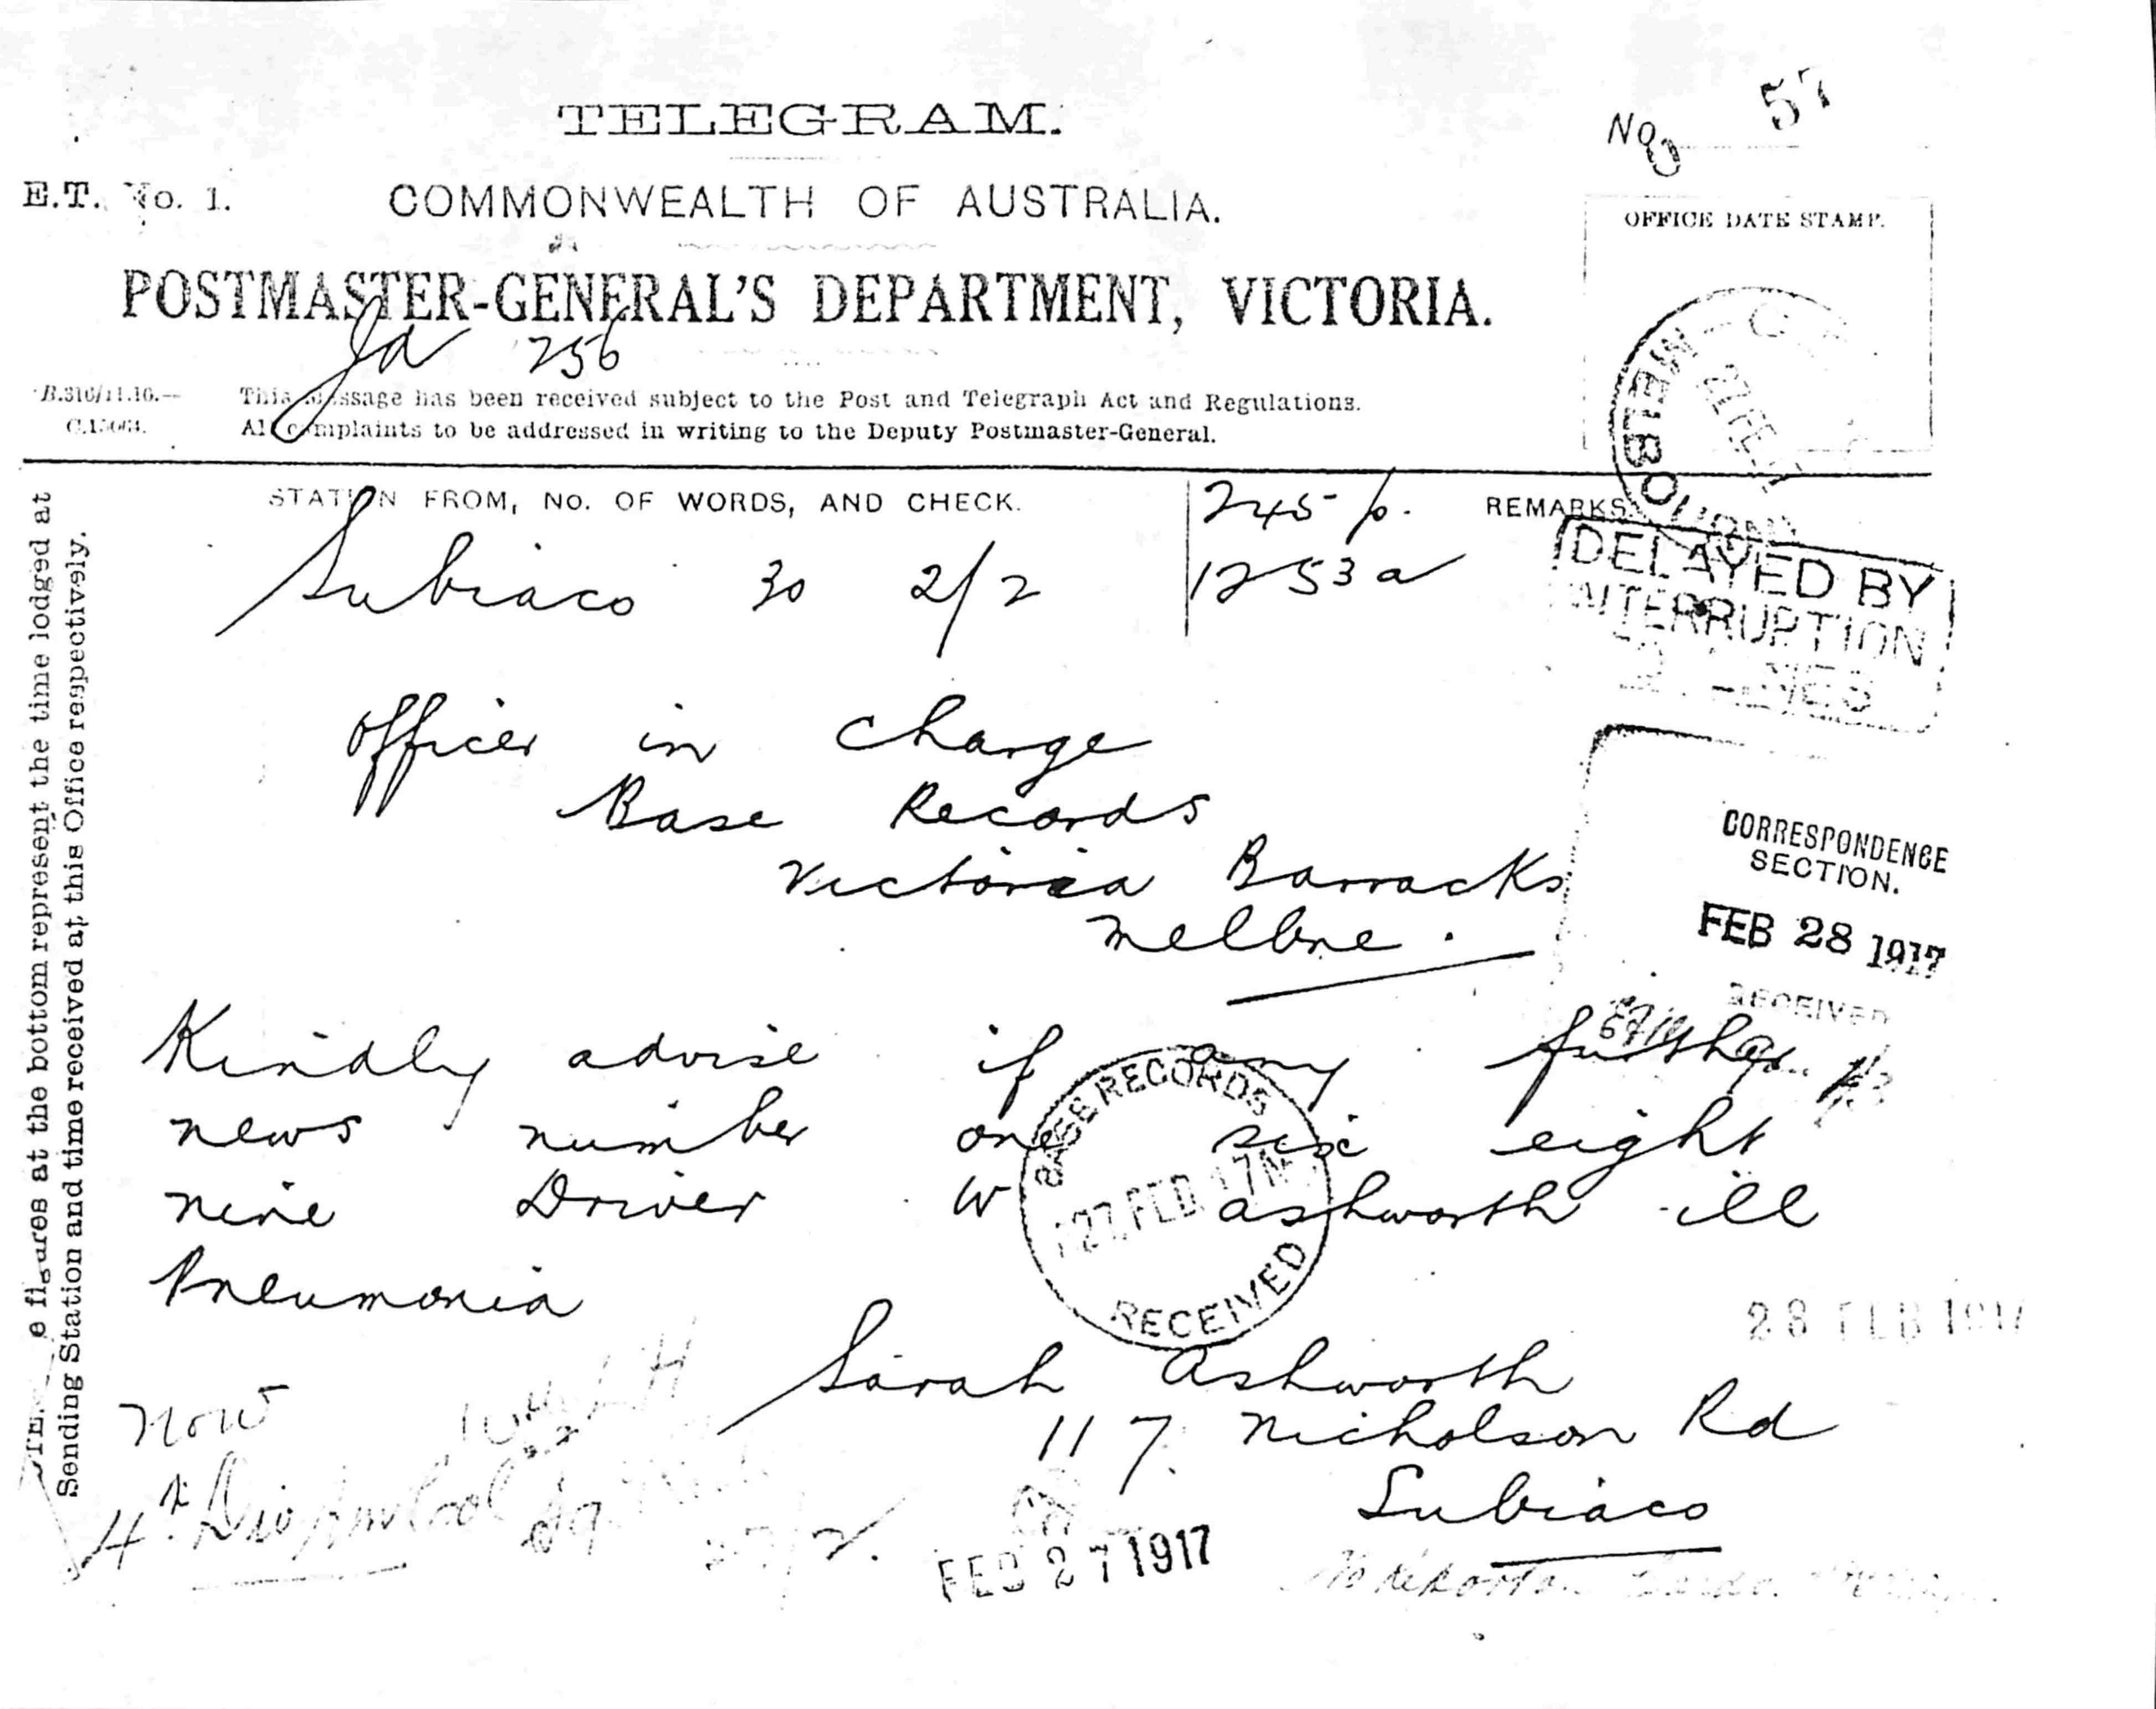 TELEGRAM.
No. 57
E.T. No. 1.
COMMONWEALTH OF AUSTRALIA.
OFFICE DATE STAMP.
POSTMASTER-GENERAL'S DEPARTMENT, VICTORIA.
256
This message has been received subject to the Post and Telegraph Act and Regulations.
All complaints to be addressed in writing to the Deputy Postmaster-General.
MELBOURNE
27 FE
STATION FROM, No. OF WORDS, AND CHECK.
REMARKS.
245 p.
Subiaco 30 2/2
1253 a
DELAYED BY
INTERRUPTION
LINES
Officer in Charge
Base Records
Victoria Barracks
Melbne.
CORRESPONDENCE
SECTION.
FEB 28 1917
RECEIVED
Kindly advise if any further
news number one six eight
nine Driver W Ashworth ill
Pneumonia
BASE RECORDS
27 FEB 17
RECEIVED
28 FEB 1917
Sarah Ashworth
117 Nicholson Rd
Subiaco
Now
4th Div
FEB 27 1917
No report
e figures at the bottom represent the time lodged at
Sending Station and time received at this Office respectively.